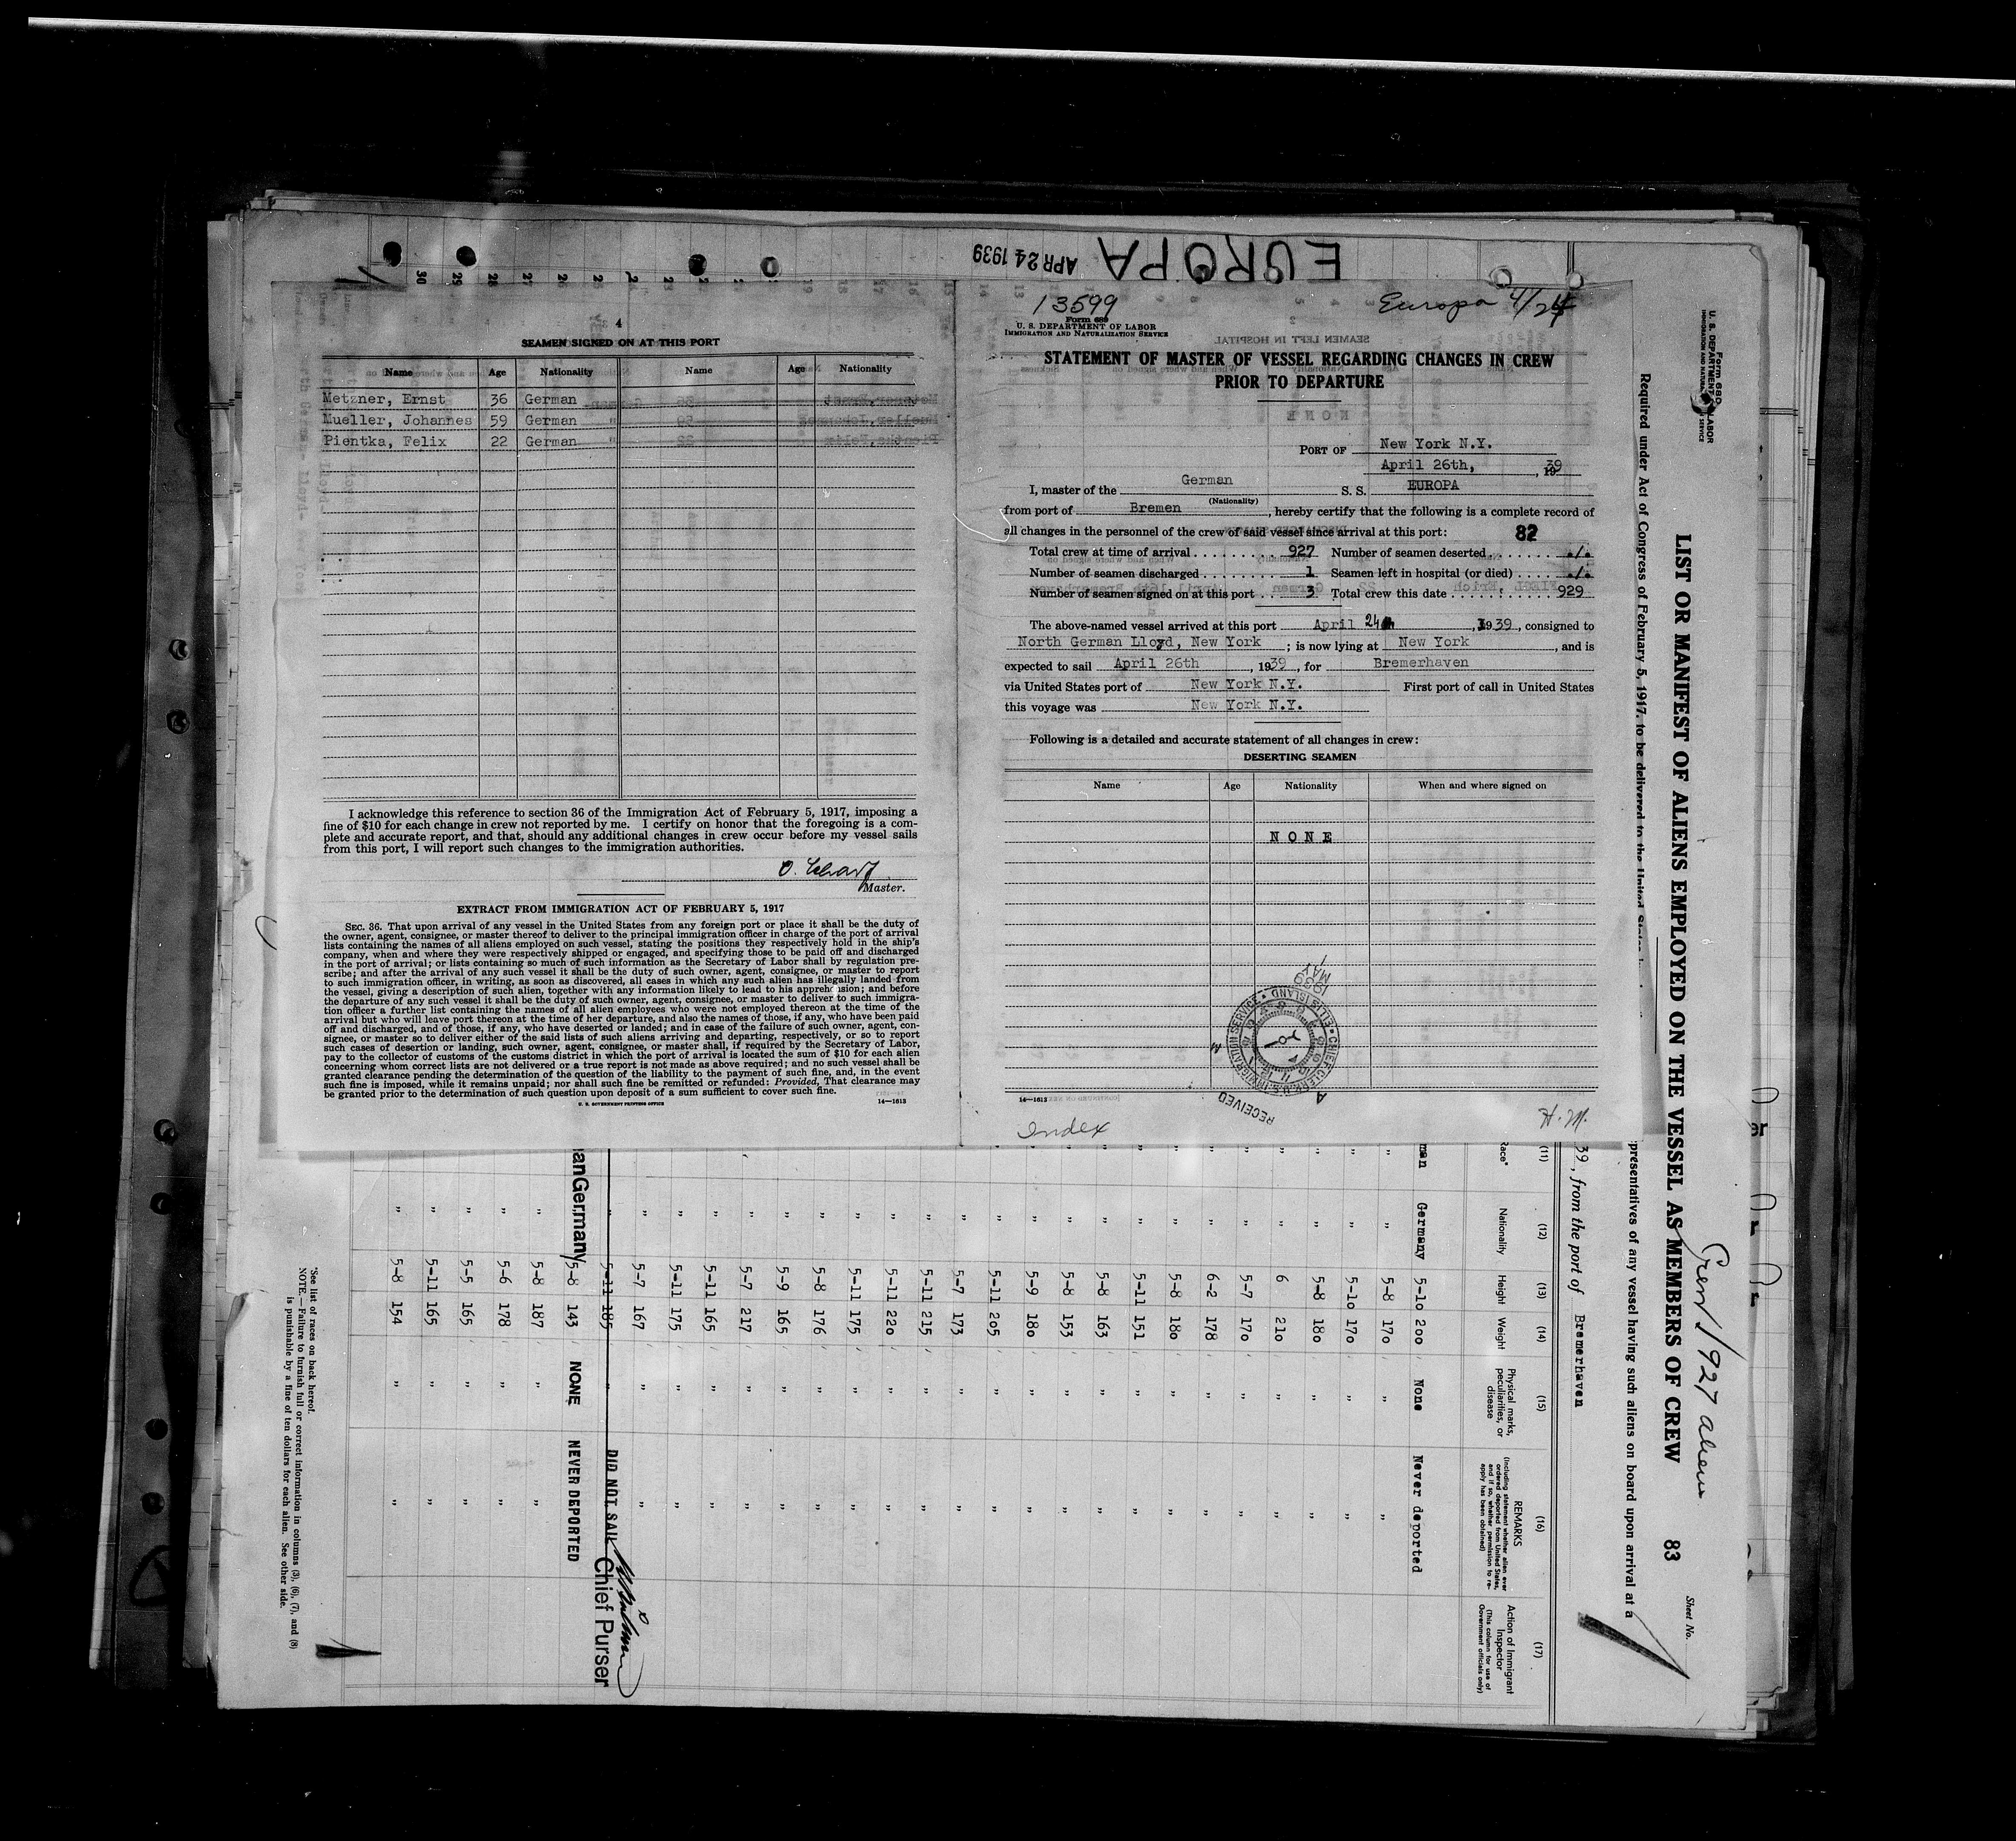 EUROPA APR 24 1939
4
SEAMEN SIGNED ON AT THIS PORT
Name Age Nationality Name Age Nationality
Metzner, Ernst 36 German
Mueller, Johannes 59 German
Pientka, Felix 22 German
I acknowledge this reference to section 36 of the Immigration Act of February 5, 1917, imposing a
fine of $10 for each change in crew not reported by me. I certify on honor that the foregoing is a com-
plete and accurate report, and that, should any additional changes in crew occur before my vessel sails
from this port, I will report such changes to the immigration authorities.
O. Scharf
Master.
EXTRACT FROM IMMIGRATION ACT OF FEBRUARY 5, 1917
SEC. 36. That upon arrival of any vessel in the United States from any foreign port or place it shall be the duty of
the owner, agent, consignee, or master thereof to deliver to the principal immigration officer in charge of the port of arrival
lists containing the names of all aliens employed on such vessel, stating the positions they respectively hold in the ship's
company, when and where they were respectively shipped or engaged, and specifying those to be paid off and discharged
in the port of arrival; or lists containing so much of such information as the Secretary of Labor shall by regulation pre-
scribe; and after the arrival of any such vessel it shall be the duty of such owner, agent, consignee, or master to report
to such immigration officer, in writing, as soon as discovered, all cases in which any such alien has illegally landed from
the vessel, giving a description of such alien, together with any information likely to lead to his apprehension; and before
the departure of any such vessel it shall be the duty of such owner, agent, consignee, or master to deliver to such immigra-
tion officer a further list containing the names of all alien employees who were not employed thereon at the time of the
arrival but who will leave port thereon at the time of her departure, and also the names of those, if any, who have been paid
off and discharged, and of those, if any, who have deserted or landed; and in case of the failure of such owner, agent, con-
signee, or master so to deliver either of the said lists of such aliens arriving and departing, respectively, or so to report
such cases of desertion or landing, such owner, agent, consignee, or master shall, if required by the Secretary of Labor,
pay to the collector of customs of the customs district in which the port of arrival is located the sum of $10 for each alien
concerning whom correct lists are not delivered or a true report is not made as above required; and no such vessel shall be
granted clearance pending the determination of the question of the liability to the payment of such fine, and, in the event
such fine is imposed, while it remains unpaid; nor shall such fine be remitted or refunded: Provided, That clearance may
be granted prior to the determination of such question upon deposit of a sum sufficient to cover such fine.
U. S. GOVERNMENT PRINTING OFFICE 14—1613
13599 Europa 4/24
Form 689
U. S. DEPARTMENT OF LABOR
IMMIGRATION AND NATURALIZATION SERVICE
STATEMENT OF MASTER OF VESSEL REGARDING CHANGES IN CREW
PRIOR TO DEPARTURE
PORT OF New York N.Y.
April 26th, 1939
I, master of the German S. S. EUROPA
(Nationality)
from port of Bremen, hereby certify that the following is a complete record of
all changes in the personnel of the crew of said vessel since arrival at this port: 82
Total crew at time of arrival 927 Number of seamen deserted ./.
Number of seamen discharged 1 Seamen left in hospital (or died) ./.
Number of seamen signed on at this port 3 Total crew this date 929
The above-named vessel arrived at this port April 24th, 1939, consigned to
North German Lloyd, New York; is now lying at New York, and is
expected to sail April 26th, 1939, for Bremerhaven
via United States port of New York N.Y. First port of call in United States
this voyage was New York N.Y.
Following is a detailed and accurate statement of all changes in crew:
DESERTING SEAMEN
Name Age Nationality When and where signed on
NONE
RECEIVED
CHIEF CLERK U.S. IMMIGRATION SERVICE • ELLIS ISLAND
1939 MAY 1
14—1613
Index H. M.
Form 680
U. S. DEPARTMENT OF LABOR
IMMIGRATION AND NATURALIZATION SERVICE
Crew / 927 aliens
Sheet No.
LIST OR MANIFEST OF ALIENS EMPLOYED ON THE VESSEL AS MEMBERS OF CREW 83
Required under Act of Congress of February 5, 1917, to be delivered to the United States
presentatives of any vessel having such aliens on board upon arrival at a
39, from the port of Bremerhaven
(11) (12) (13) (14) (15) (16) (17)
Race* Nationality Height Weight Physical marks, peculiarities, or disease REMARKS (Including statement whether alien ever ordered deported from United States, and if so, whether permission to re-apply has been obtained) Action of Immigrant Inspector (This column for use of Government officials only)
man Germany 5-10 200 None Never deported
" " 5-8 170 " "
" " 5-10 170 " "
" " 5-8 180 " "
" " 6 210 " "
" " 5-7 170 " "
" " 6-2 178 " "
" " 5-8 180 " "
" " 5-11 151 " "
" " 5-8 163 " "
" " 5-8 153 " "
" " 5-9 180 " "
" " 5-11 205 " "
" " 5-7 173 " "
" " 5-11 215 " "
" " 5-11 220 " "
" " 5-11 175 " "
" " 5-8 176 " "
" " 5-9 165 " "
" " 5-7 217 " "
" " 5-11 165 " "
" " 5-11 175 " "
" " 5-7 167 " "
" 5-11 185 " DID NOT SAIL Chief Purser
anGermany 5-8 143 NONE NEVER DEPORTED
" 5-8 187 " "
" 5-6 178 " "
" 5-5 165 " "
" 5-11 165 " "
" 5-8 154 " "
*See list of races on back hereof.
NOTE.—Failure to furnish full or correct information in columns (3), (6), (7), and (8)
is punishable by a fine of ten dollars for each alien. See other side.